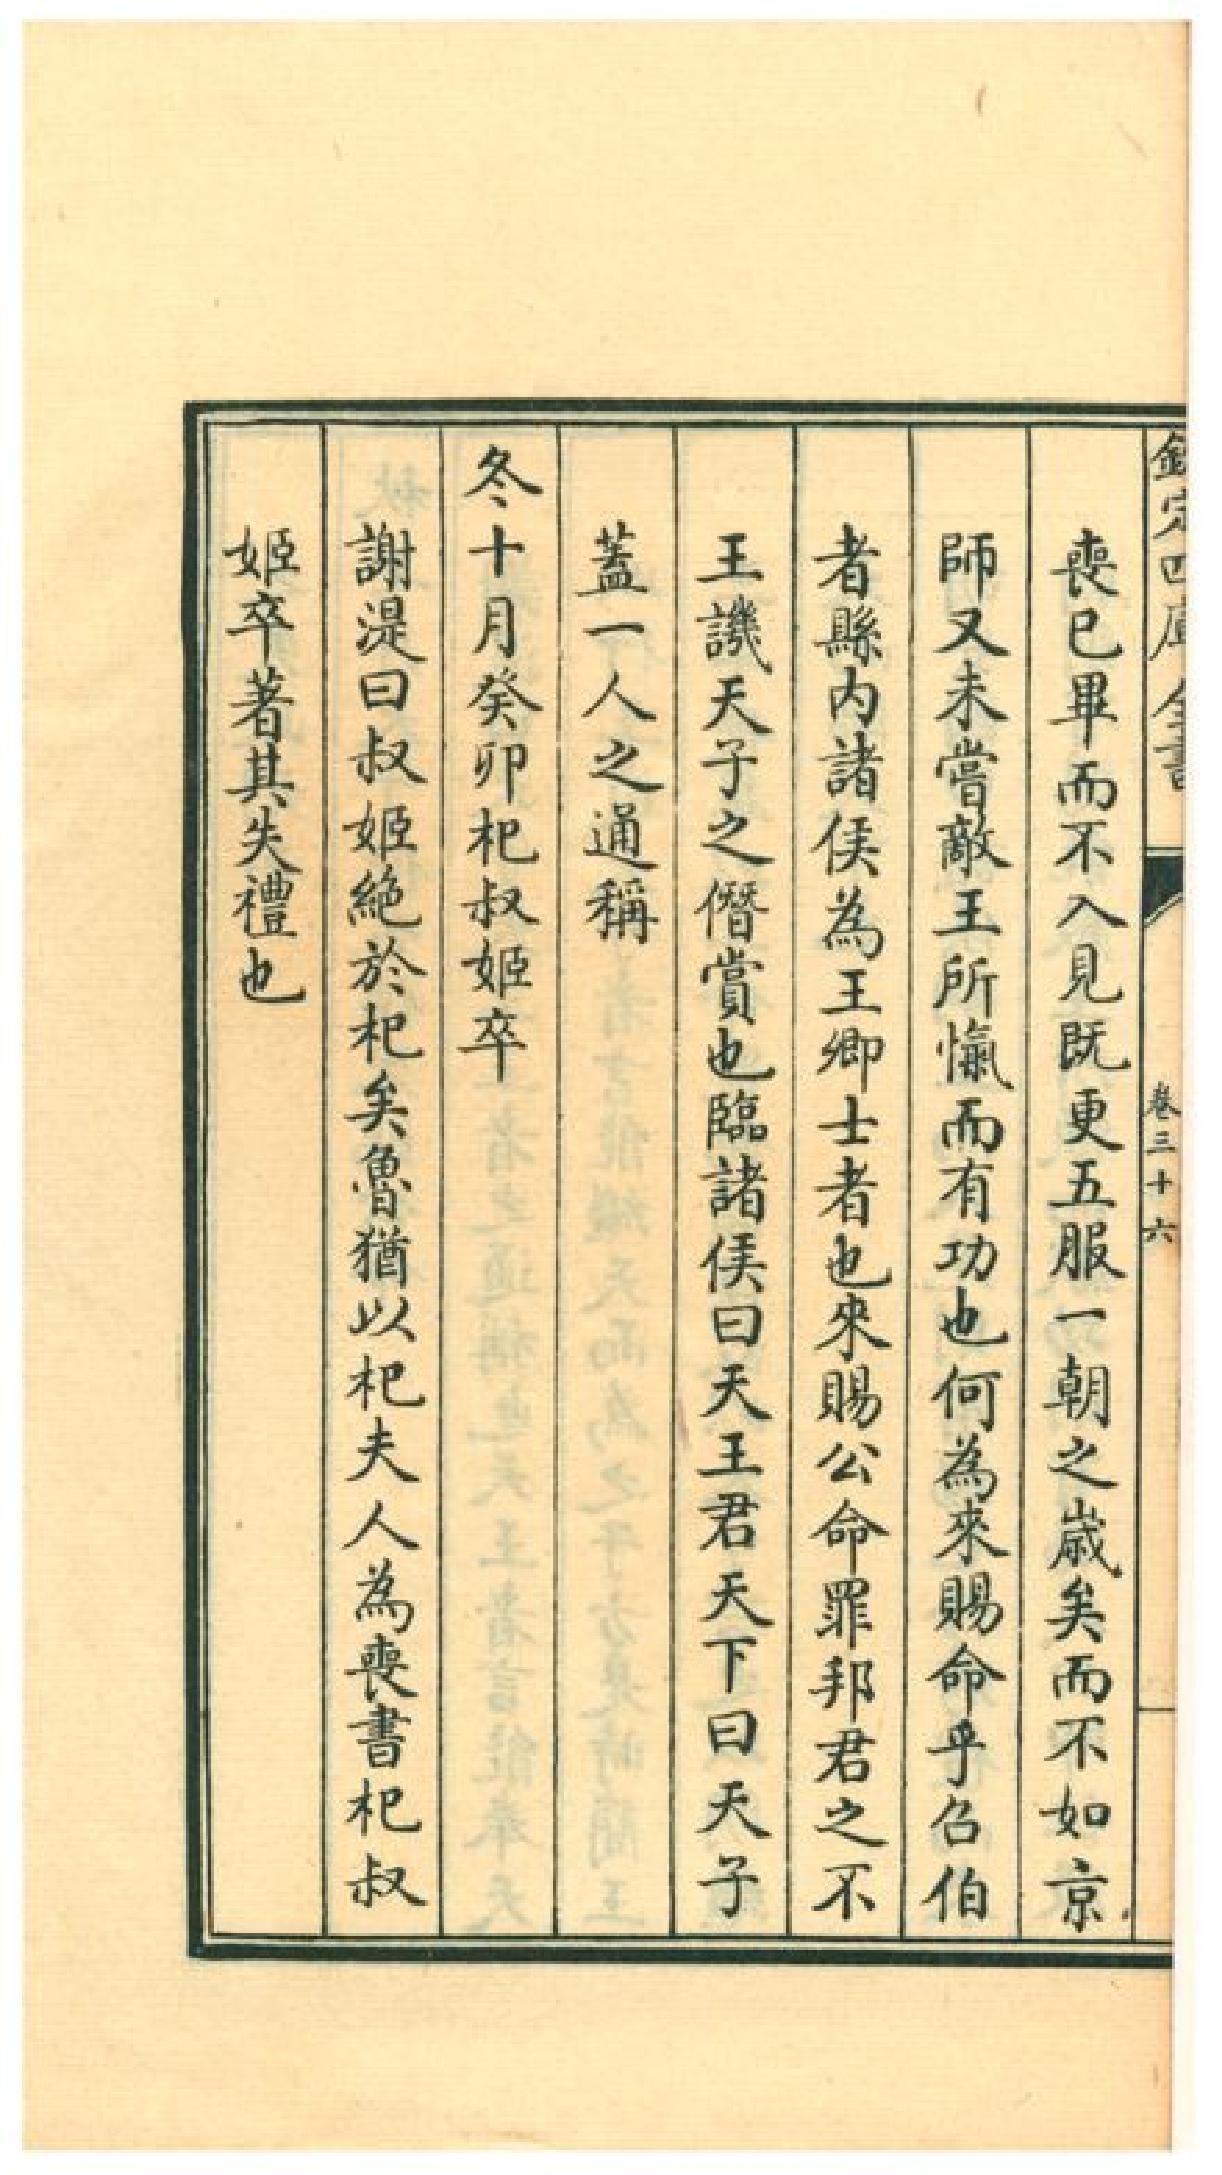 欽定四庫全書
卷三十六
喪已畢而不入見既更五服一朝之嵗矣而不如京
師又未嘗敵王所愾而有功也何為來賜命乎召伯
者縣内諸侯為王卿士者也來賜公命罪邦君之不
王譏天子之僭賞也臨諸侯曰天王君天下曰天子
蓋一人之通稱
冬十月癸卯杞叔姬卒
謝湜曰叔姬絶於杞矣魯猶以杞夫人為喪書杞叔
姬卒著其失禮也